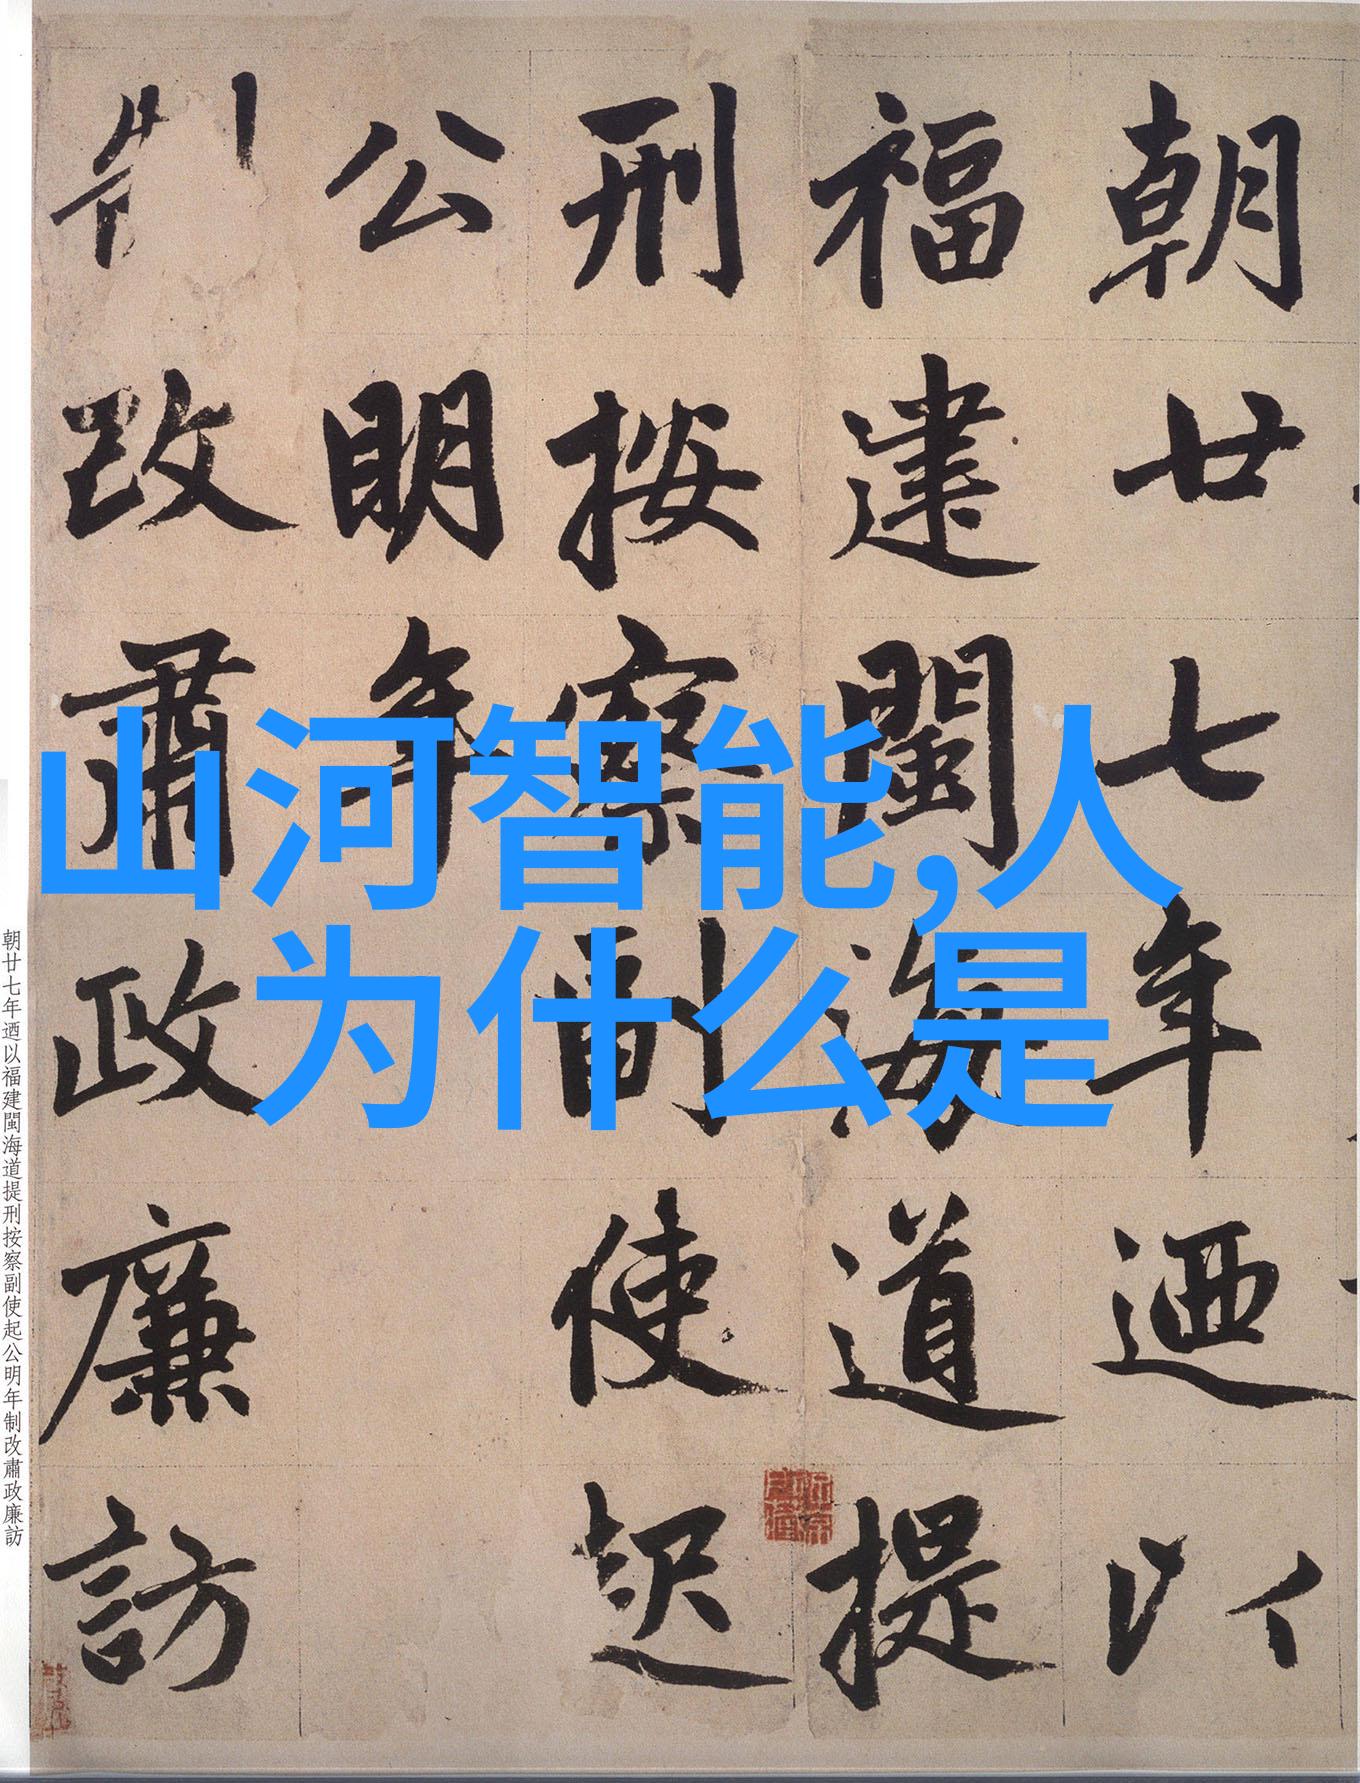 朝廿七年迺以
福建閩海道提
刑按察副使起
公明年
制改肅政廉訪
山河智能,人
为什么是
朝廿七年迺以福建閩海道提刑按察副使起公明年制改肅政廉訪